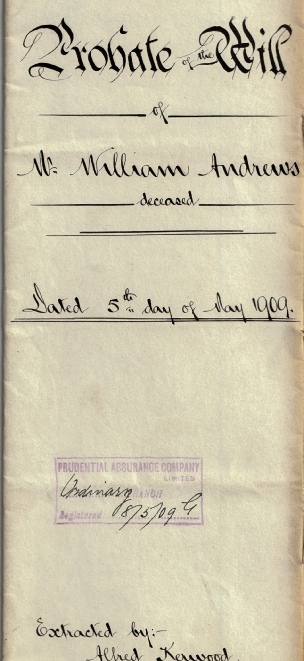 Probate of the Will
of
Mr William Andrews
deceased
Dated 5th day of May 1909.
PRUDENTIAL ASSURANCE COMPANY
LIMITED
Ordinary BRANCH
Registered 8/5/09 G
Extracted by:-
Alfred Kenwood